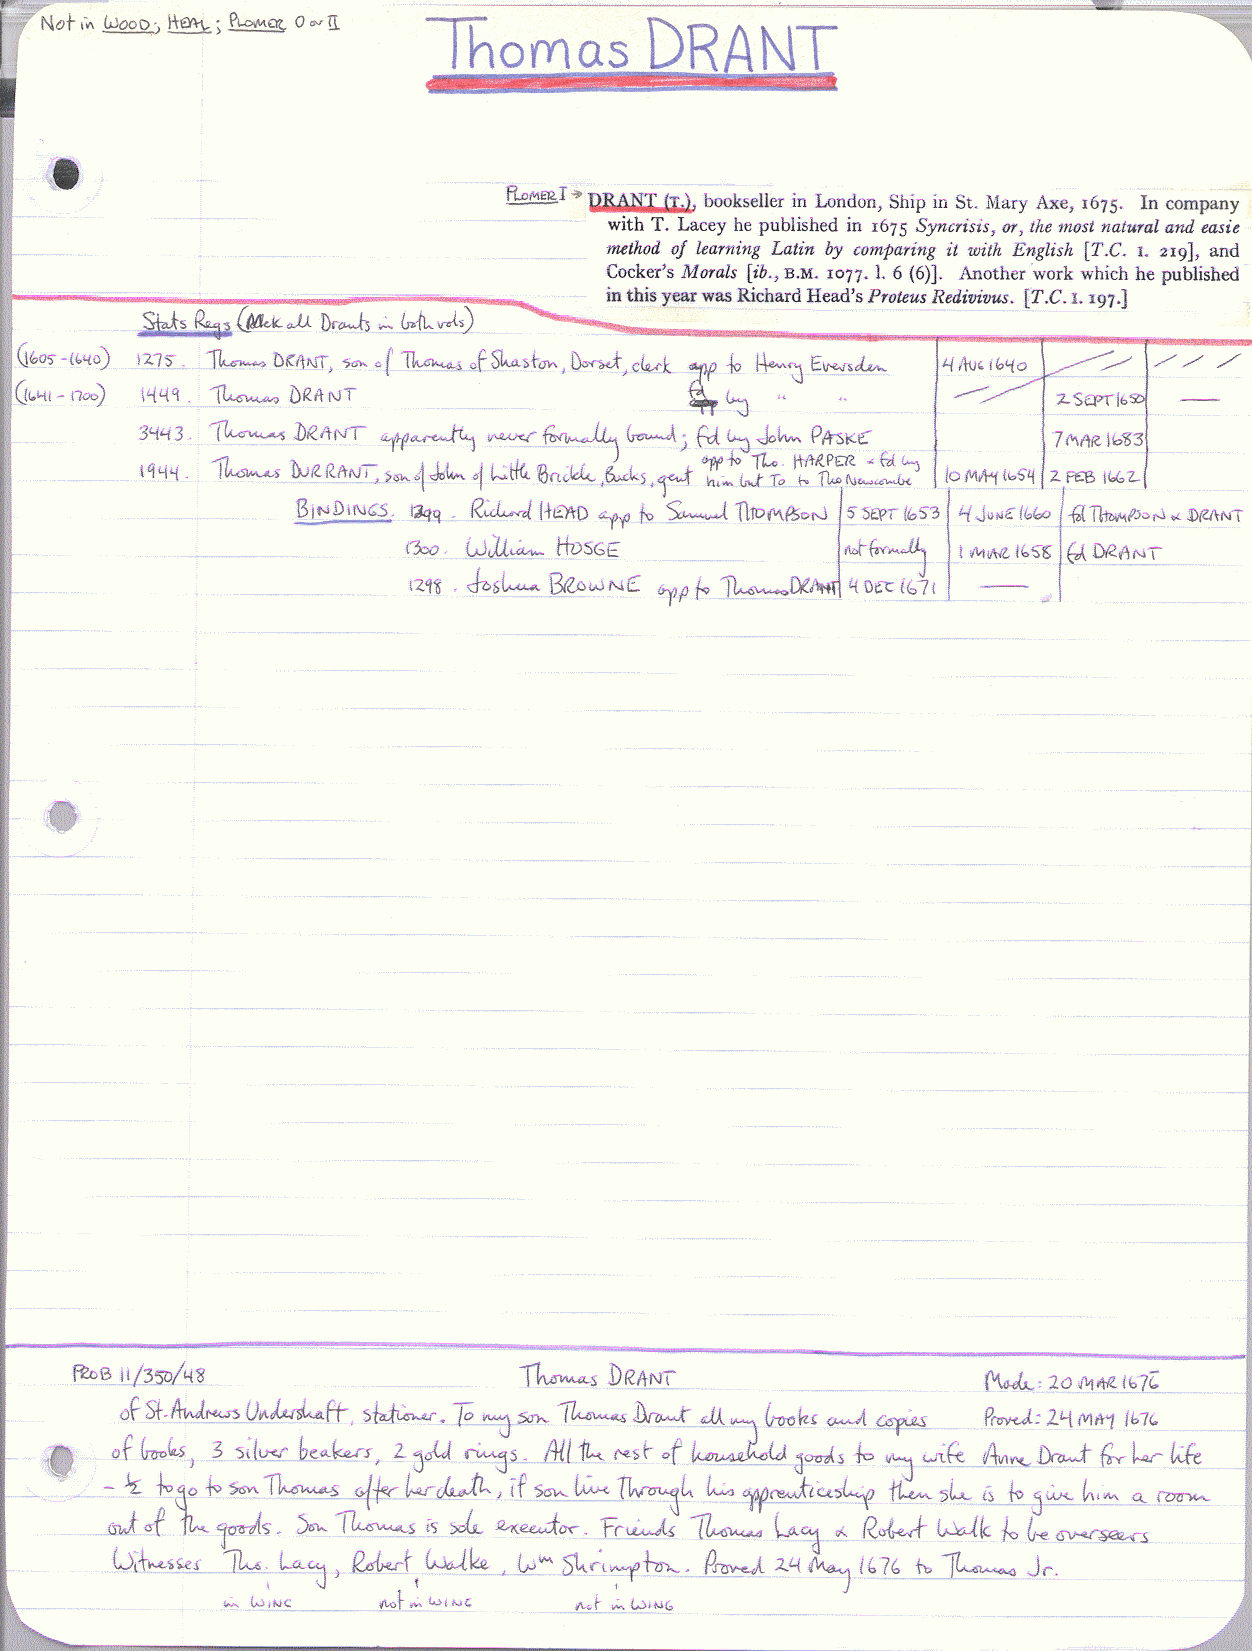 Not in WOOD; HEAL; PLOMER O or II
Thomas DRANT
PLOMER I → DRANT (T.), bookseller in London, Ship in St. Mary Axe, 1675. In company
with T. Lacey he published in 1675 Syncrisis, or, the most natural and easie
method of learning Latin by comparing it with English [T.C. I. 219], and
Cocker's Morals [ib., B.M. 1077. l. 6 (6)]. Another work which he published
in this year was Richard Head's Proteus Redivivus. [T.C. I. 197.]
Stats Regs (Ack all Drants in both vols)
(1605-1640) 1275. Thomas DRANT, son of Thomas of Shaston, Dorset, clerk app to Henry Eversden 4 AUG 1640
(1641-1700) 1449. Thomas DRANT fd by " " 2 SEPT 1650 —
3443. Thomas DRANT apparently never formally bound; fd by John PASKE 7 MAR 1683
1944. Thomas DURRANT, son of John of Little Brickle, Bucks, gent app to Tho. HARPER & fd by him but To to Tho Newcombe 10 MAY 1654 2 FEB 1662
BINDINGS. 1299. Richard HEAD app to Samuel THOMPSON 5 SEPT 1653 4 JUNE 1660 fd THOMPSON & DRANT
1300. William HOSGE not formally 1 MAR 1658 fd DRANT
1298. Joshua BROWNE app to Thomas DRANT 4 DEC 1671 —
PROB 11/350/48 Thomas DRANT Made: 20 MAR 1676
of St. Andrews Undershaft, stationer. To my son Thomas Drant all my books and copies Proved: 24 MAY 1676
of books, 3 silver beakers, 2 gold rings. All the rest of household goods to my wife Anne Drant for her life
- ½ to go to son Thomas after her death, if son live through his apprenticeship then she is to give him a room
out of the goods. Son Thomas is sole executor. Friends Thomas Lacy & Robert Walk to be overseers
Witnesses Tho. Lacy, Robert Walke, Wm Shrimpton. Proved 24 May 1676 to Thomas Jr.
in WING not in WING not in WING